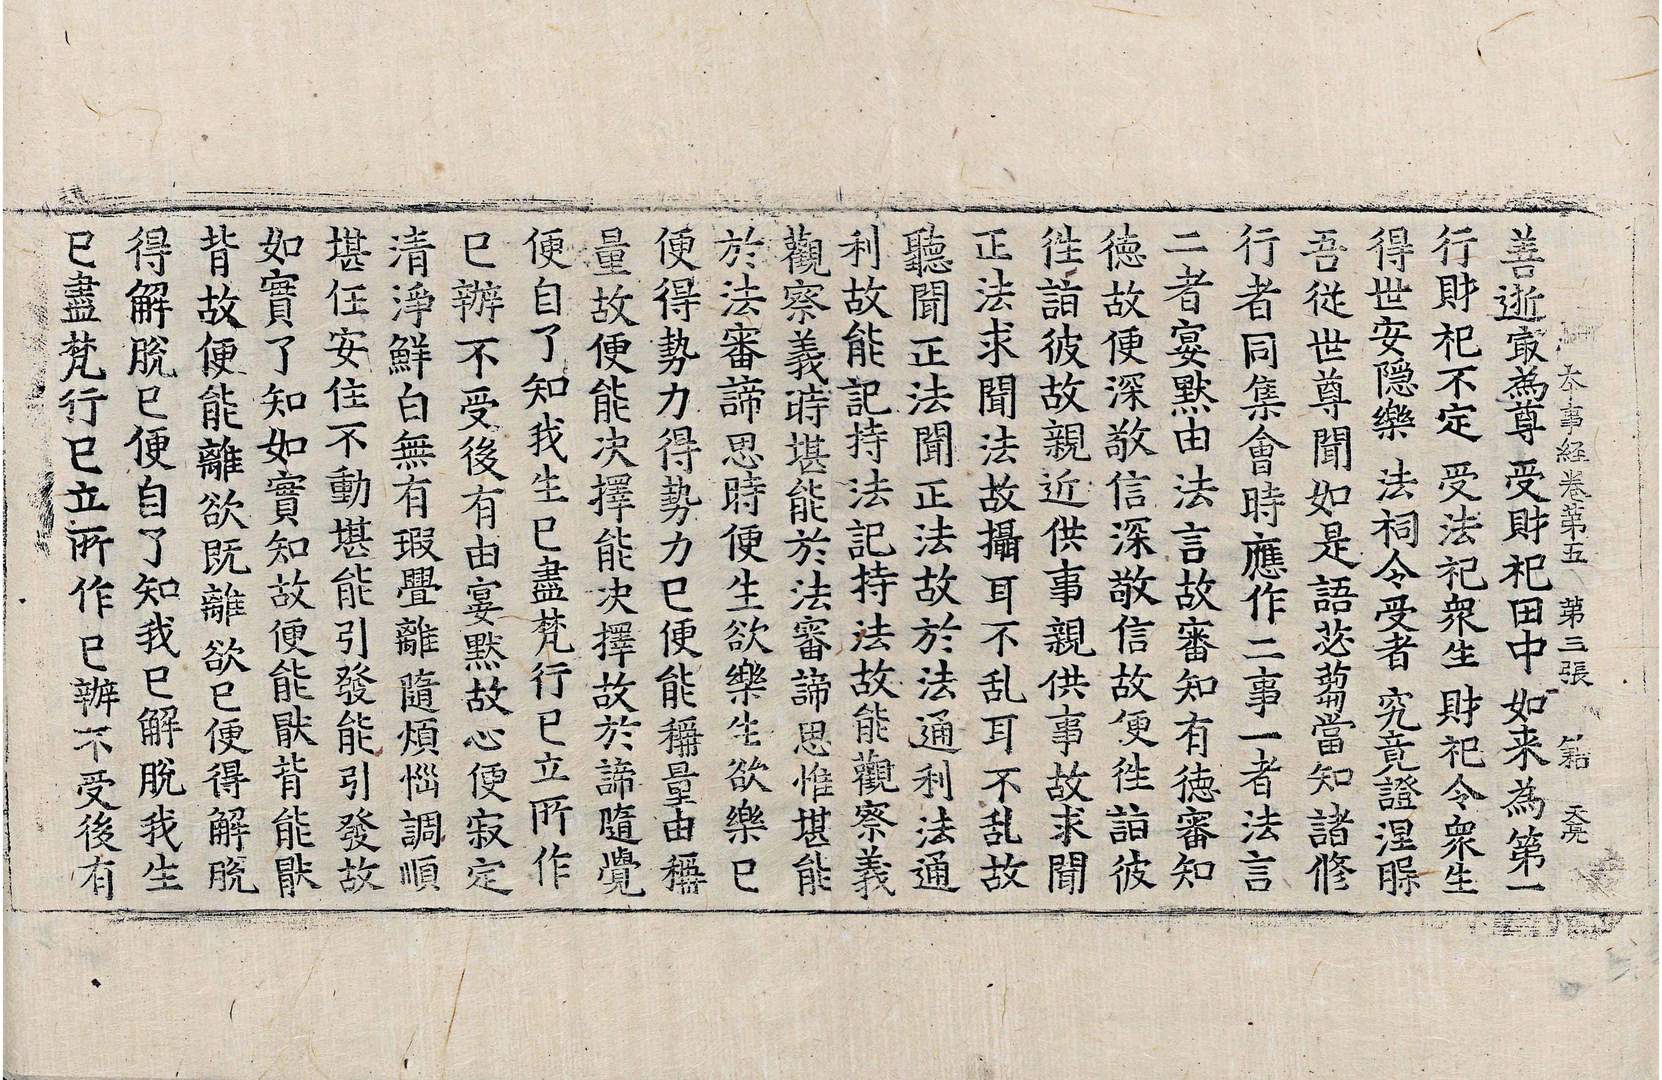 本事経卷第五 第三張 籍 天亮
善逝㝡為尊 受財祀田中 如来為第一
行財祀不定 受法祀衆生 財祀令衆生
得世安隠樂 法祠令受者 究竟證涅槃
吾從世尊聞如是語苾蒭當知諸修
行者同集會時應作二事一者法言
二者宴默由法言故審知有德審知
德故便深敬信深敬信故便徃詣彼
徃詣彼故親近供事親供事故求聞
正法求聞法故攝耳不乱耳不乱故
聽聞正法聞正法故於法通利法通
利故能記持法記持法故能觀察義
觀察義時堪能於法審諦思惟堪能
於法審諦思時便生欲樂生欲樂已
便得勢力得勢力已便能稱量由稱
量故便能决擇能决擇故於諦隨覺
便自了知我生已盡梵行已立所作
已辦不受後有由宴默故心便寂定
清淨鮮白無有瑕舋離隨煩惱調順
堪任安住不動堪能引發能引發故
如實了知如實知故便能猒背能猒
背故便能離欲既離欲已便得解脫
得解脫已便自了知我已解脫我生
已盡梵行已立所作已辦不受後有